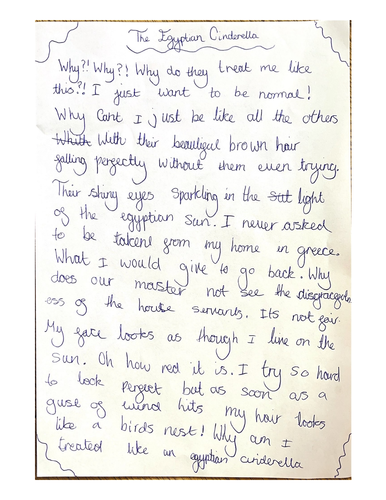 The Egyptian Cinderella
Why?! Why?! Why do they treat me like
this?! I just want to be normal!
Why Cant I just be like all the others
With their beautigul brown hair
galling pergectly without them even trying.
Thier shiny eyes sparkling in the light
og the egyptian sun. I never asked
to be takent grom my home in greece.
What I would give to go back. Why
does our master not see the disgracegul
oss og the house servants. Its not gair.
My gace looks as though I live on the
sun. Oh how red it is. I try so hard
to look pergect but as soon as a
guse og wind hits my hair looks
like a birds nest! Why am I
treated like an egyptian cinderella